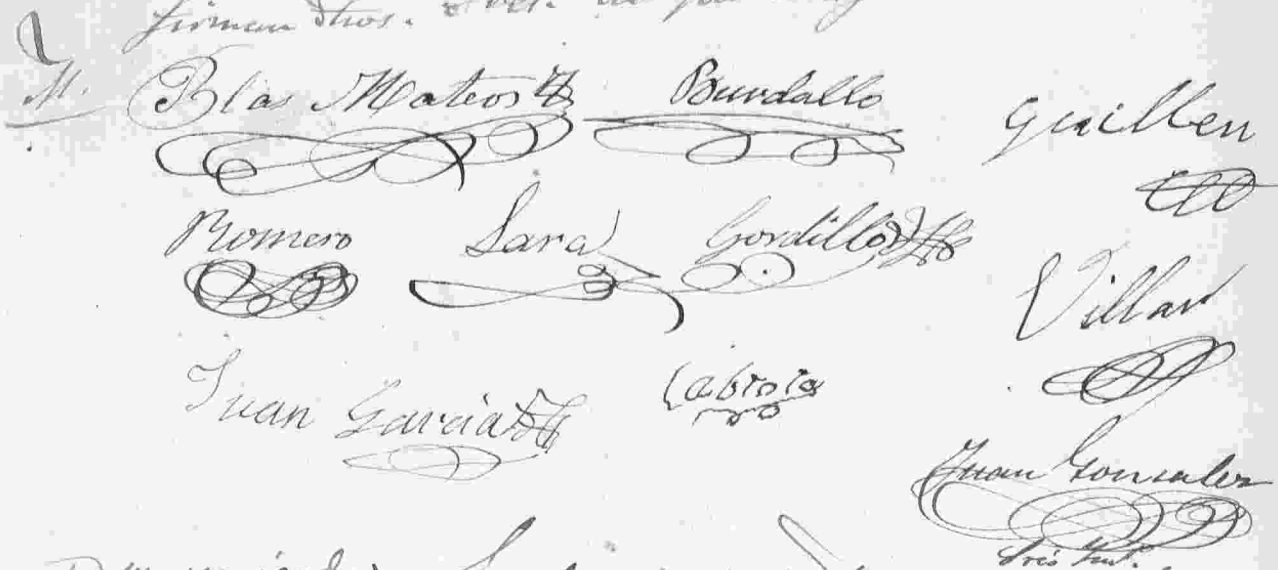 firman dhos. Sres. de que
Blas Mateos Burdallo Guillen
Romero Lara Gordillo Villar
Juan Garcia Cabrera
Juan Gonzalez
Srio